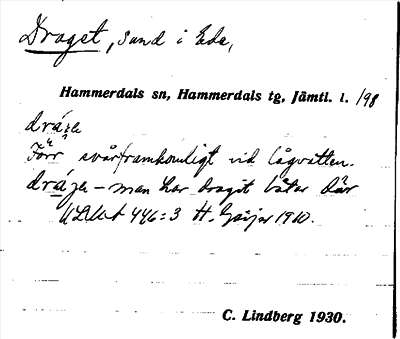 Draget, sund i Ede,
Hammerdals sn, Hammerdals tg, Jämtl. l. /98
dráγa
Förr svårframkomligt vid lågvatten.
dráγa – man har dragit båtar där
ULMA 446:3 H. Geijer 1910.
C. Lindberg 1930.